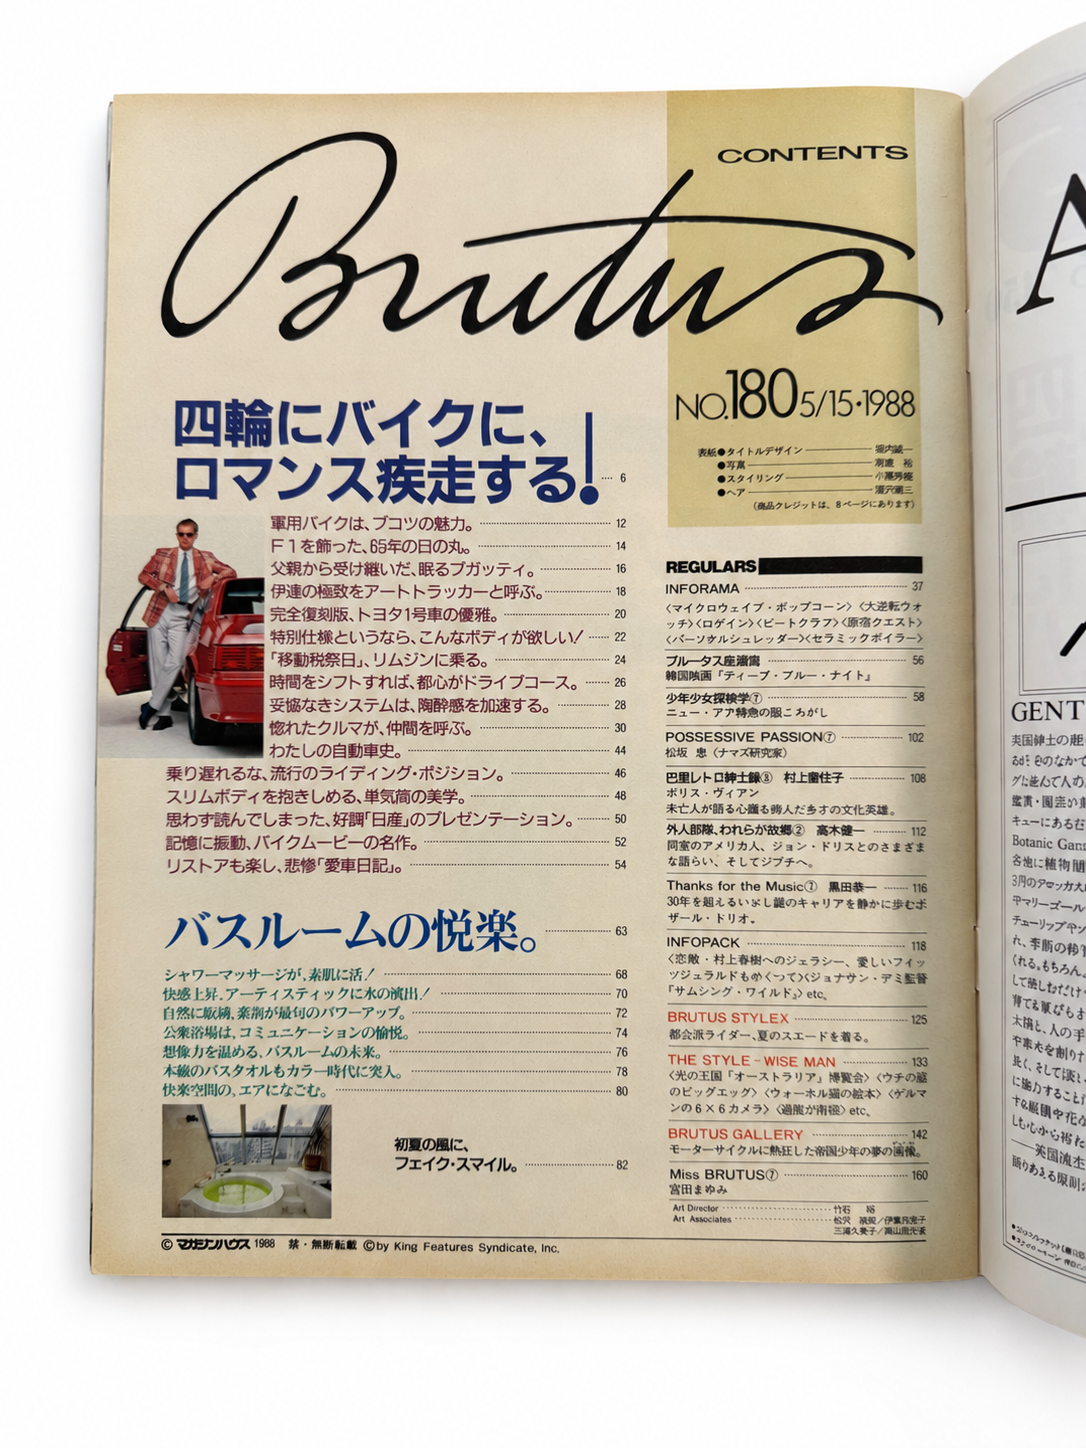 CONTENTS
Brutus
NO.180 5/15・1988
表紙●タイトルデザイン 堀内誠一
●写真
●スタイリング
●ヘア
(商品クレジットは、8ページにあります)
四輪にバイクに、
ロマンス疾走する! 6
軍用バイクは、ブコツの魅力。 12
F1を飾った、65年の日の丸。 14
父親から受け継いだ、眠るブガッティ。 16
伊達の極致をアートトラッカーと呼ぶ。 18
完全復刻版、トヨタ1号車の優雅。 20
特別仕様というなら、こんなボディが欲しい! 22
「移動税祭日」、リムジンに乗る。 24
時間をシフトすれば、都心がドライブコース。 26
妥協なきシステムは、陶酔感を加速する。 28
惚れたクルマが、仲間を呼ぶ。 30
わたしの自動車史。 44
乗り遅れるな、流行のライディング・ポジション。 46
スリムボディを抱きしめる、単気筒の美学。 48
思わず読んでしまった、好調「日産」のプレゼンテーション。 50
記憶に振動、バイクムービーの名作。 52
リストアも楽し、悲惨「愛車日記」。 54
バスルームの悦楽。 63
シャワーマッサージが、素肌に活! 68
快感上昇。アーティスティックに水の演出! 70
自然に取材、薬剤が最旬のパワーアップ。 72
公衆浴場は、コミュニケーションの愉悦。 74
想像力を温める、バスルームの未来。 76
本級のバスタオルもカラー時代に突入。 78
快楽空間の、エアになごむ。 80
初夏の風に、
フェイク・スマイル。 82
© マガジンハウス 1988 禁・無断転載 ©by King Features Syndicate, Inc.
REGULARS
INFORAMA 37
〈マイクロウェイブ・ポップコーン〉〈大逆転ウォ
ッチ〉〈ロゲイン〉〈ビートクラブ〉〈原宿クエスト〉
〈パーソナルシュレッダー〉〈セラミックボイラー〉
ブルータス座 56
韓国映画「ディープ・ブルー・ナイト」
少年少女探検学⑦ 58
ニュー・アカ特急の
POSSESSIVE PASSION⑦ 102
松坂 忠(ナマズ研究家)
巴里レトロ紳士録⑧ 村上香住子 108
ボリス・ヴィアン
未亡人が語る心臓を病んだ多才の文化英雄。
外人部隊、われらが故郷② 高木健一 112
同室のアメリカ人、ジョン・ドリスとのさまざま
な語らい、そしてジブチへ。
Thanks for the Music⑦ 黒田恭一 116
30年を超えるいぶし銀のキャリアを静かに歩むボ
ザール・トリオ。
INFOPACK 118
〈恋敵・村上春樹へのジェラシー、愛しいフィッ
ツジェラルドをめぐって〉〈ジョナサン・デミ監督
『サムシング・ワイルド』〉etc.
BRUTUS STYLEX 125
都会派ライダー、夏のスエードを着る。
THE STYLE-WISE MAN 133
〈光の王国「オーストラリア」博覧会〉〈ウチの庭
のビッグエッグ〉〈ウォーホル猫の絵本〉〈ゲルマ
ンの6×6カメラ〉 etc.
BRUTUS GALLERY 142
モーターサイクルに熱狂した帝国少年の夢の画像。
Miss BRUTUS⑦ 160
宮田まゆみ
Art Director
Art Associates
A
GENT
英国紳士の庭
Botanic Gar
各地に植物園
マリーゴール